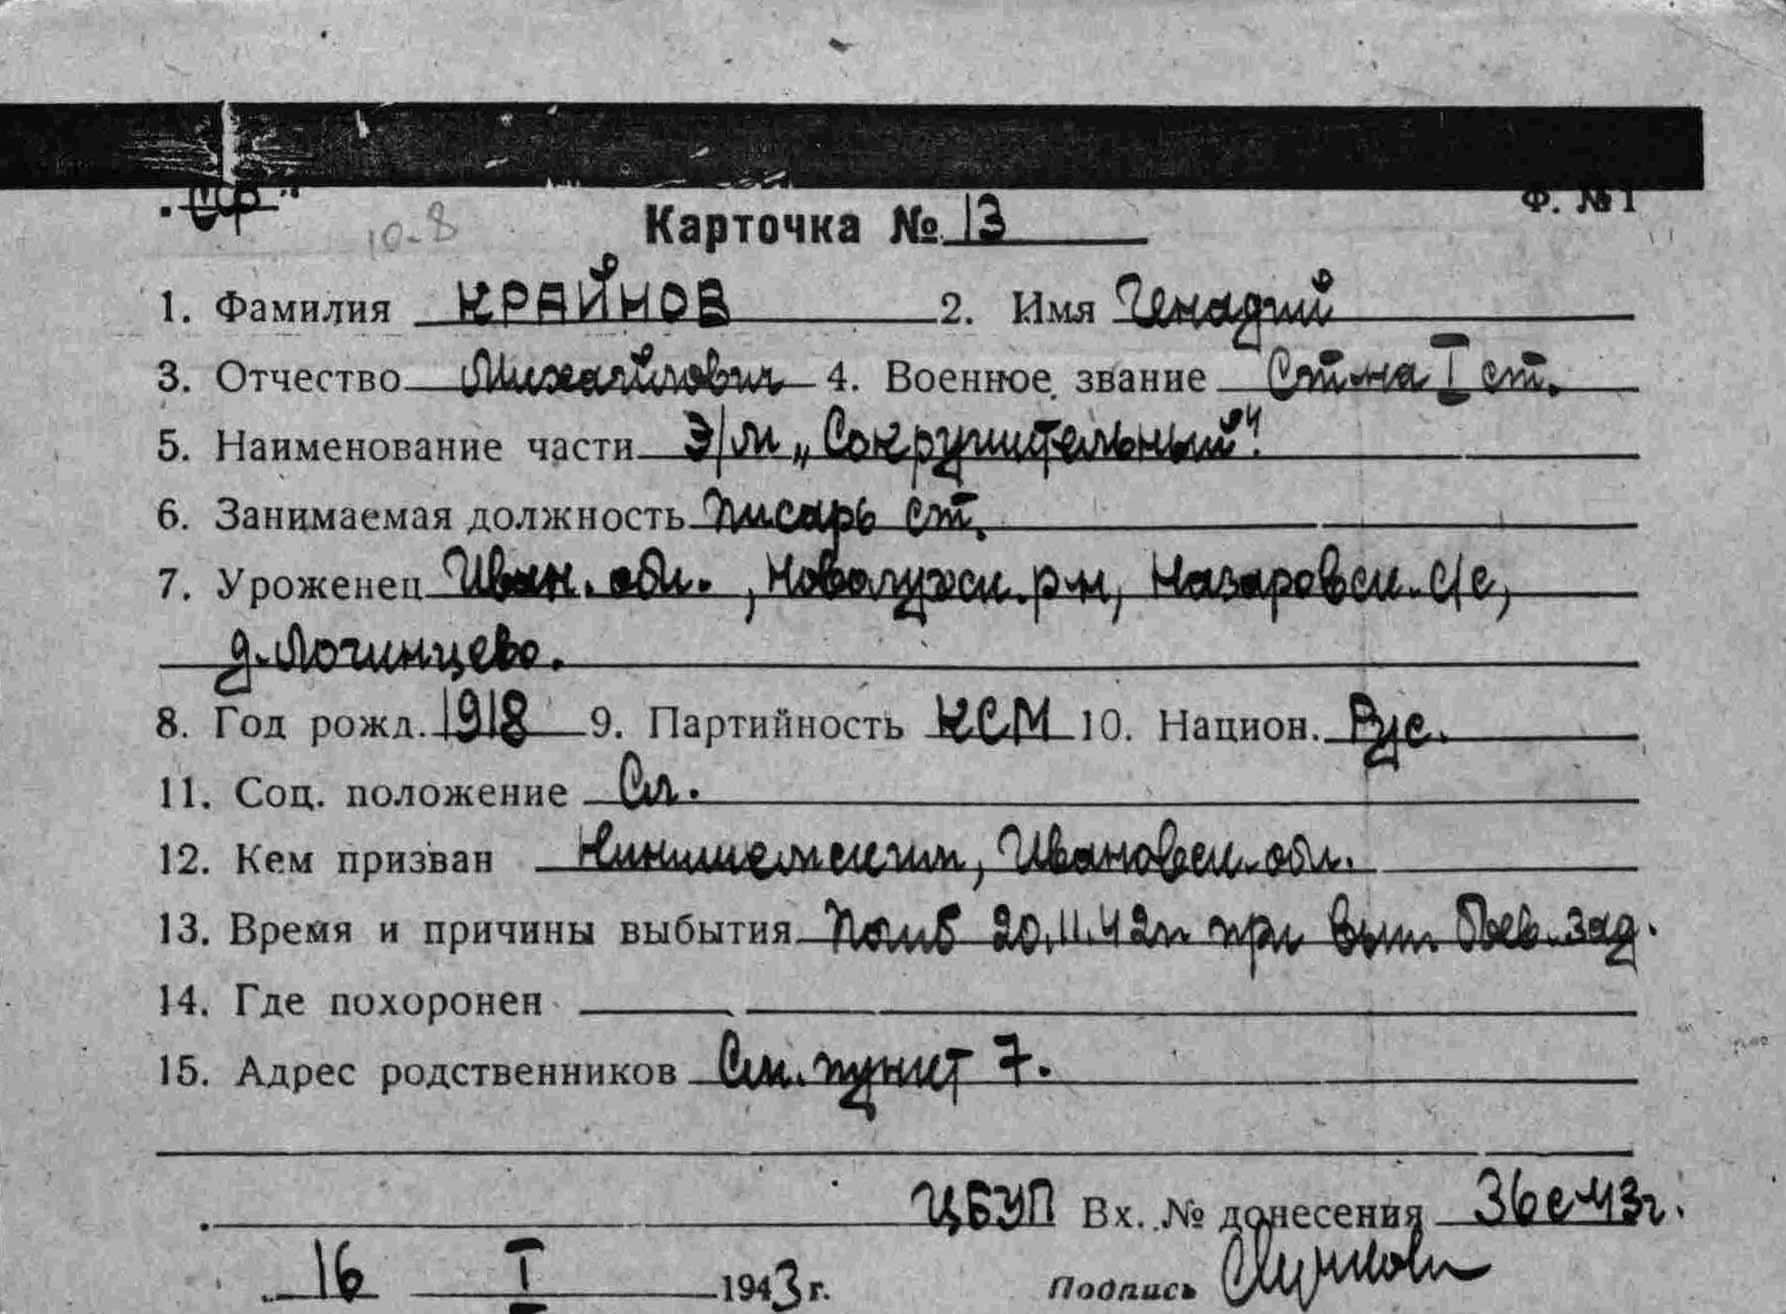 "СФ"
10-8
Ф. №1
Карточка № 13
1. Фамилия КРАЙНОВ 2. Имя Генадий
3. Отчество Михайлович 4. Военное звание Ст-на I ст.
5. Наименование части Э/м „Сокрушительный".
6. Занимаемая должность писарь ст.
7. Уроженец Иван. обл., Новолужск. р-н, Назаровск. с/с,
д. Логинцево.
8. Год рожд. 1918 9. Партийность КСМ 10. Национ. Рус.
11. Соц. положение Сл.
12. Кем призван Кинишемским, Ивановск. обл.
13. Время и причины выбытия Погиб 20.11.42г. при вып. боев. зад.
14. Где похоронен
15. Адрес родственников См. пункт 7.
ЦБУП Вх. № донесения 36с-43г.
16 I 1943 г. Подпись